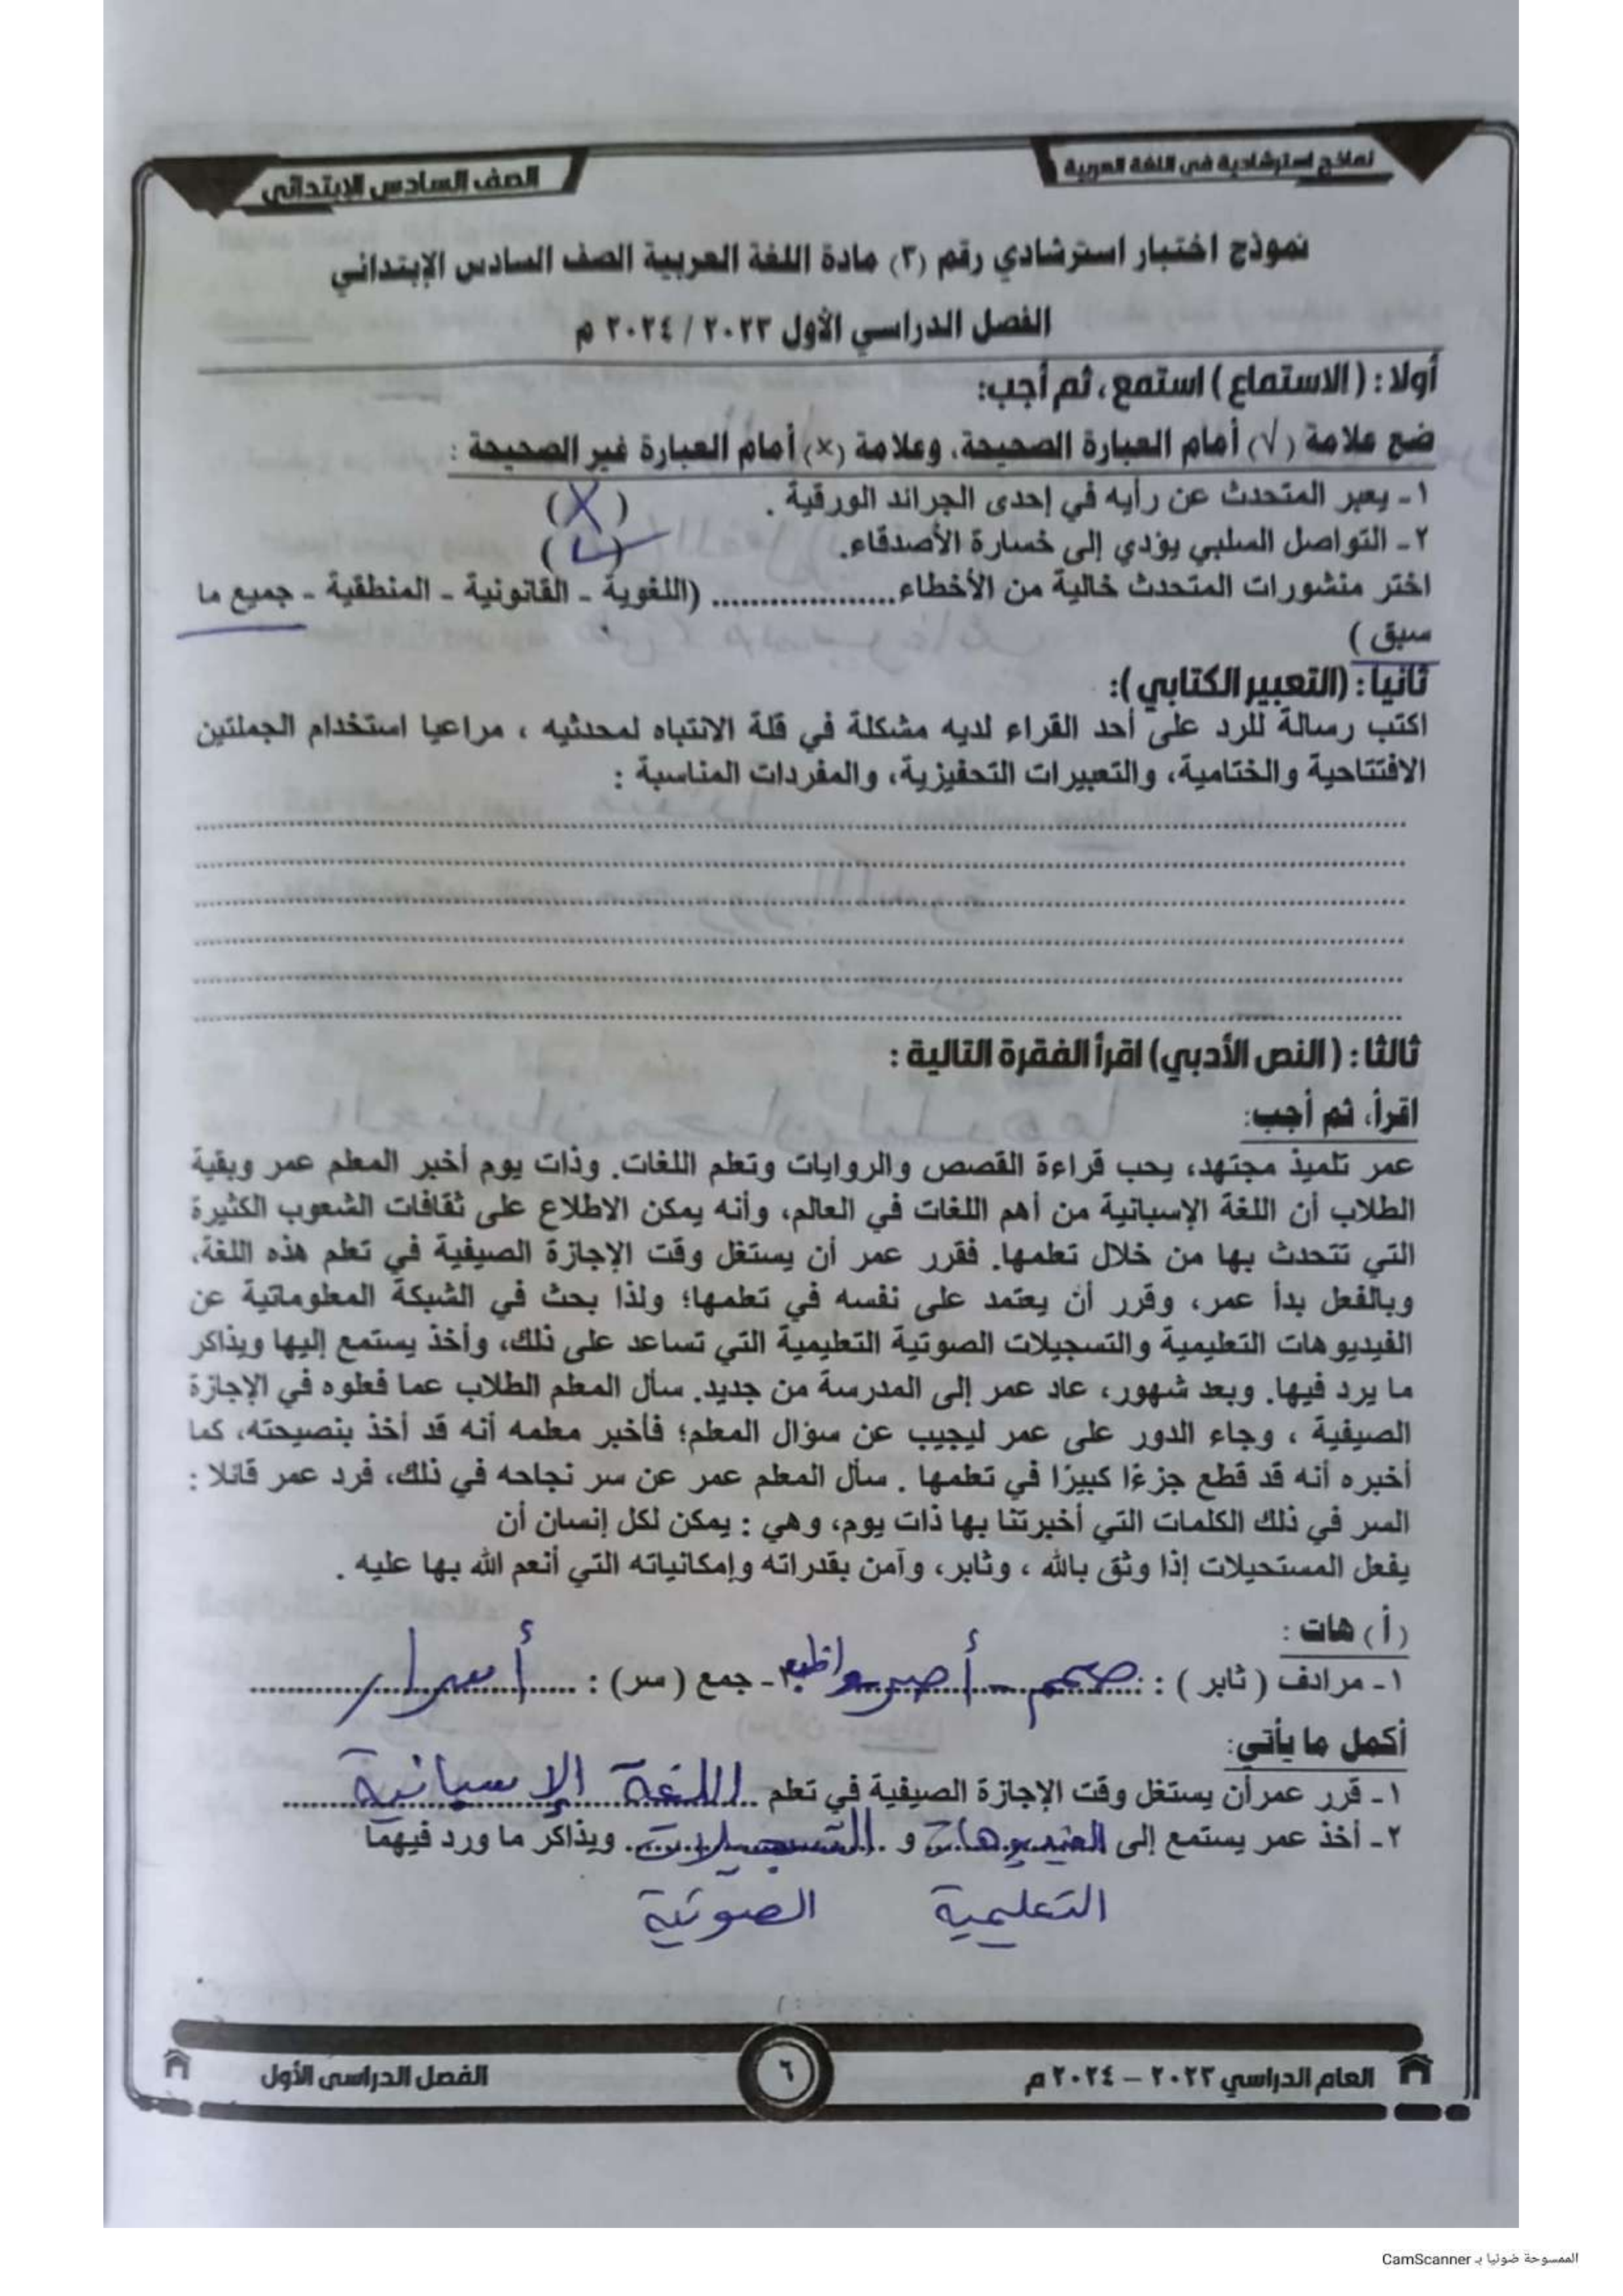 نماذج استرشادية في اللغة العربية
الصف السادس الابتدائي
نموذج اختبار استرشادي رقم (٣) مادة اللغة العربية الصف السادس الإبتدائي
الفصل الدراسي الأول ٢٠٢٣ / ٢٠٢٤ م
أولا : ( الاستماع ) استمع ، ثم أجب:
ضع علامة (√) أمام العبارة الصحيحة، وعلامة (×) أمام العبارة غير الصحيحة :
١ - يعبر المتحدث عن رأيه في إحدى الجرائد الورقية . (X)
٢ - التواصل السلبي يؤدي إلى خسارة الأصدقاء. (✓)
اختر منشورات المتحدث خالية من الأخطاء................... (اللغوية - القانونية - المنطقية - جميع ما
سبق )
ثانيا : (التعبير الكتابي ):
اكتب رسالة للرد على أحد القراء لديه مشكلة في قلة الانتباه لمحدثيه ، مراعيا استخدام الجملتين
الافتتاحية والختامية، والتعبيرات التحفيزية، والمفردات المناسبة :
ثالثا : ( النص الأدبي) اقرأ الفقرة التالية :
اقرأ، ثم أجب:
عمر تلميذ مجتهد، يحب قراءة القصص والروايات وتعلم اللغات. وذات يوم أخبر المعلم عمر وبقية
الطلاب أن اللغة الإسبانية من أهم اللغات في العالم، وأنه يمكن الاطلاع على ثقافات الشعوب الكثيرة
التي تتحدث بها من خلال تعلمها. فقرر عمر أن يستغل وقت الإجازة الصيفية في تعلم هذه اللغة،
وبالفعل بدأ عمر، وقرر أن يعتمد على نفسه في تعلمها؛ ولذا بحث في الشبكة المعلوماتية عن
الفيديوهات التعليمية والتسجيلات الصوتية التعليمية التي تساعد على ذلك، وأخذ يستمع إليها ويذاكر
ما يرد فيها. وبعد شهور، عاد عمر إلى المدرسة من جديد. سأل المعلم الطلاب عما فعلوه في الإجازة
الصيفية ، وجاء الدور على عمر ليجيب عن سؤال المعلم؛ فأخبر معلمه أنه قد أخذ بنصيحته، كما
أخبره أنه قد قطع جزءًا كبيرًا في تعلمها . سأل المعلم عمر عن سر نجاحه في ذلك، فرد عمر قائلا :
السر في ذلك الكلمات التي أخبرتنا بها ذات يوم، وهي : يمكن لكل إنسان أن
يفعل المستحيلات إذا وثق بالله ، وثابر، وآمن بقدراته وإمكانياته التي أنعم الله بها عليه .
(أ) هات :
١ - مرادف ( ثابر ) : صمم - أصر واظب ٢ - جمع ( سر) : أسرار
أكمل ما يأتي:
١ - قرر عمر أن يستغل وقت الإجازة الصيفية في تعلم اللغة الإسبانية
٢ - أخذ عمر يستمع إلى الفيديوهات و التسجيلات. ويذاكر ما ورد فيهما
التعليمية الصوتية
العام الدراسي ٢٠٢٣ – ٢٠٢٤ م
٦
الفصل الدراسي الأول
الممسوحة ضوئيا بـ CamScanner